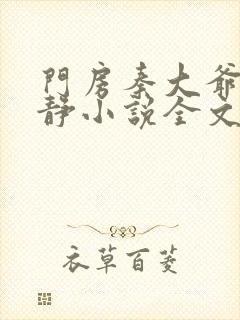 門房秦大爺
靜小說全文
衣草百菱